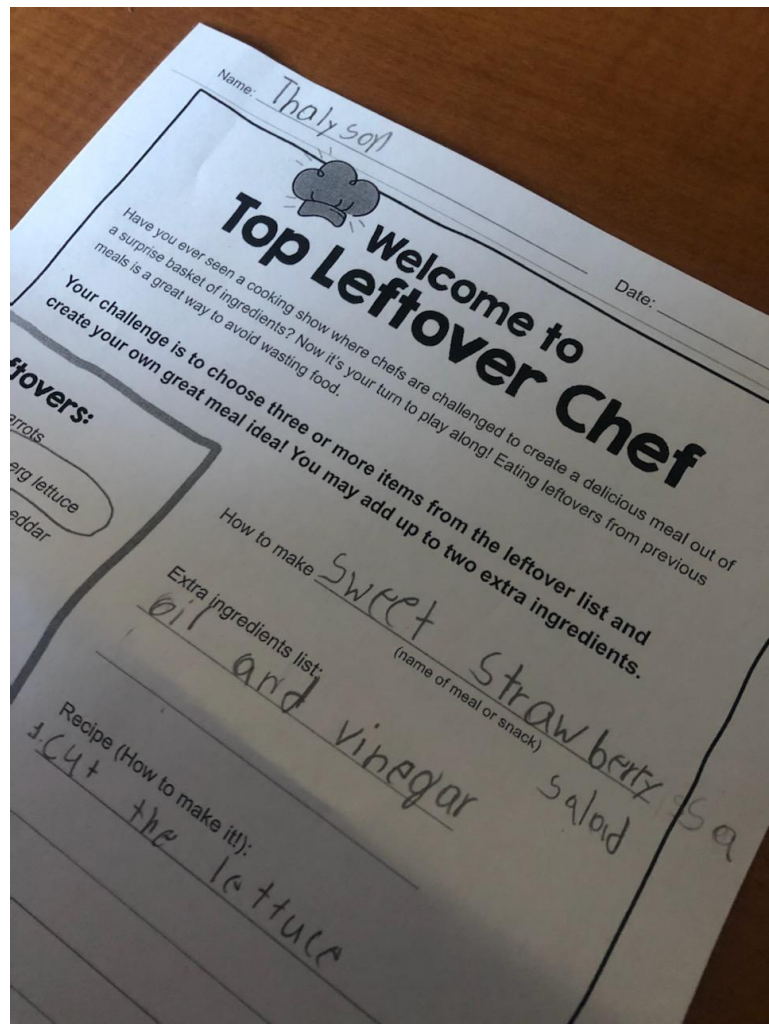 Name: Thalyson
Date:
Welcome to
Top Leftover Chef
Have you ever seen a cooking show where chefs are challenged to create a delicious meal out of
a surprise basket of ingredients? Now it's your turn to play along! Eating leftovers from previous
meals is a great way to avoid wasting food.
Your challenge is to choose three or more items from the leftover list and
create your own great meal idea! You may add up to two extra ingredients.
ftovers:
arrots
erg lettuce
eddar
How to make sweet strawberry sa
(name of meal or snack)
salad
Extra ingredients list:
oil and vinegar
Recipe (How to make it!):
1. Cut the lettuce